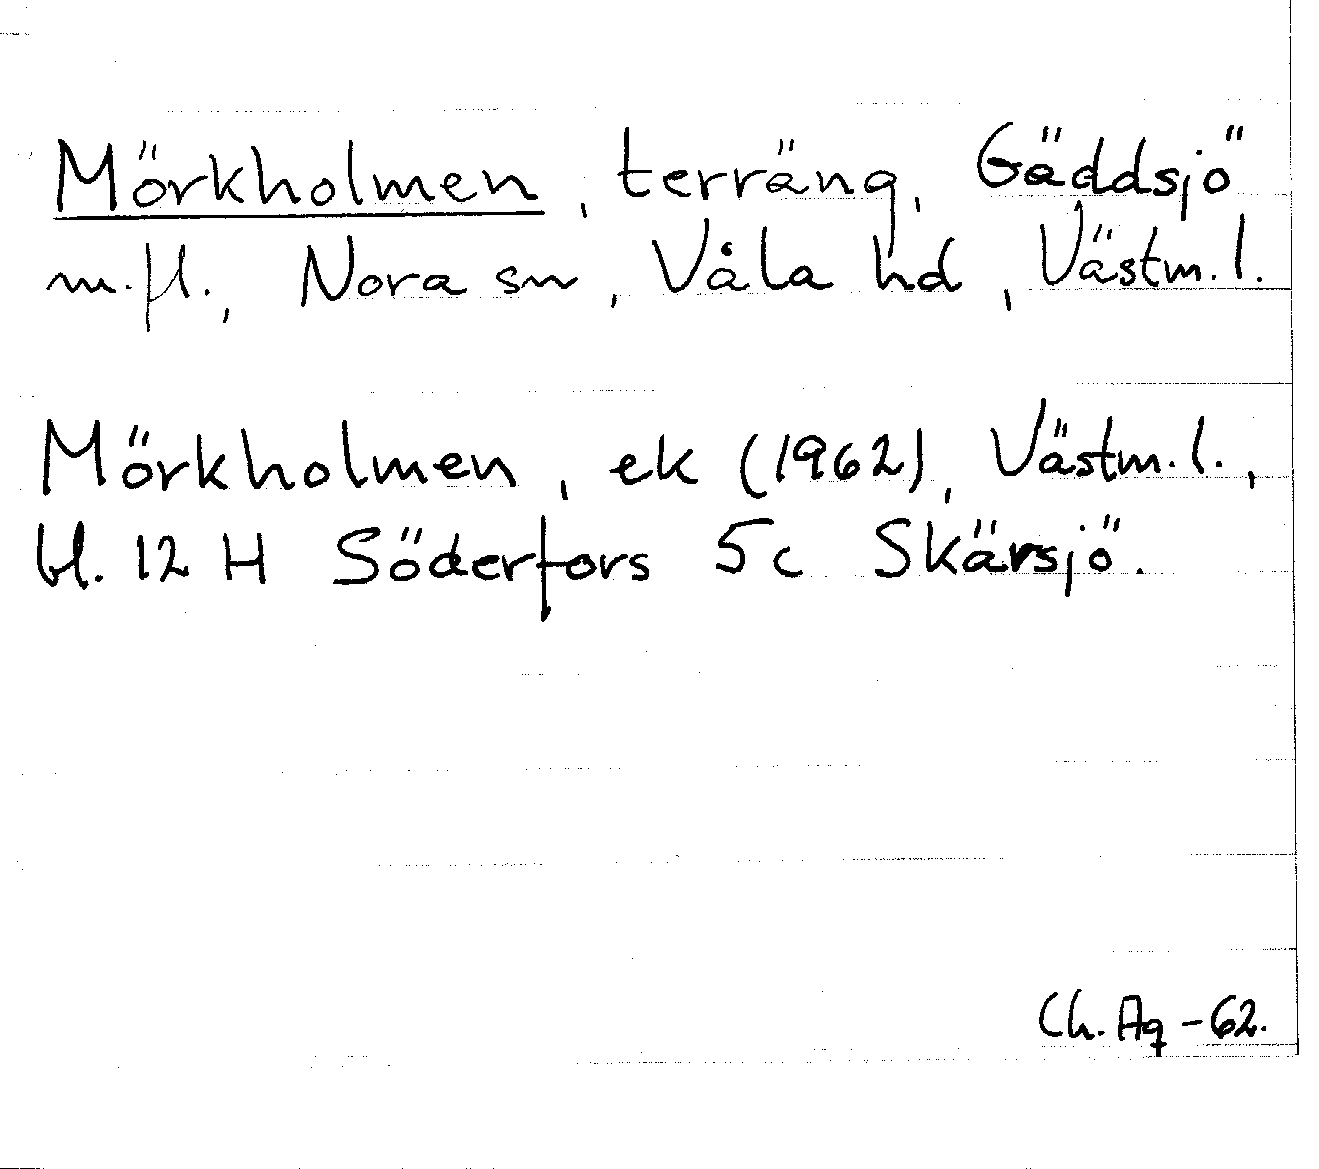 Mörkholmen, terräng, Gäddsjö
m.fl., Nora sn, Våla hd, Västm.l.
Mörkholmen, ek (1962), Västm.l.,
bl. 12 H Söderfors 5c Skärsjö.
Ch. Ag -62.